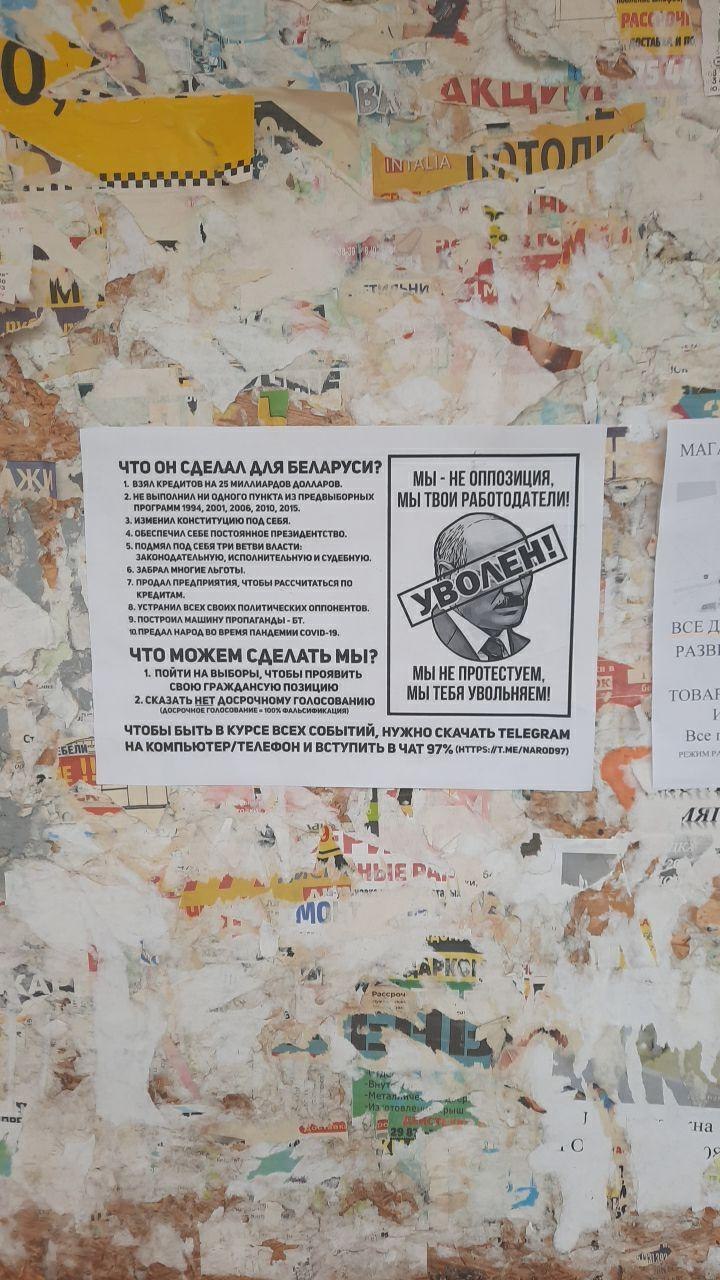 РАССРОЧ
О,
АКЦИИ
INTALIA
ПОТОЛК
ЖИ
МАГА
ЧТО ОН СДЕЛАЛ ДЛЯ БЕЛАРУСИ?
1. ВЗЯЛ КРЕДИТОВ НА 25 МИЛЛИАРДОВ ДОЛЛАРОВ.
2. НЕ ВЫПОЛНИЛ НИ ОДНОГО ПУНКТА ИЗ ПРЕДВЫБОРНЫХ
ПРОГРАММ 1994, 2001, 2006, 2010, 2015.
3. ИЗМЕНИЛ КОНСТИТУЦИЮ ПОД СЕБЯ.
4. ОБЕСПЕЧИЛ СЕБЕ ПОСТОЯННОЕ ПРЕЗИДЕНТСТВО.
5. ПОДМЯЛ ПОД СЕБЯ ТРИ ВЕТВИ ВЛАСТИ:
ЗАКОНОДАТЕЛЬНУЮ, ИСПОЛНИТЕЛЬНУЮ И СУДЕБНУЮ.
6. ЗАБРАЛ МНОГИЕ ЛЬГОТЫ.
7. ПРОДАЛ ПРЕДПРИЯТИЯ, ЧТОБЫ РАССЧИТАТЬСЯ ПО
КРЕДИТАМ.
8. УСТРАНИЛ ВСЕХ СВОИХ ПОЛИТИЧЕСКИХ ОППОНЕНТОВ.
9. ПОСТРОИЛ МАШИНУ ПРОПАГАНДЫ - БТ.
10. ПРЕДАЛ НАРОД ВО ВРЕМЯ ПАНДЕМИИ COVID-19.
ЧТО МОЖЕМ СДЕЛАТЬ МЫ?
1. ПОЙТИ НА ВЫБОРЫ, ЧТОБЫ ПРОЯВИТЬ
СВОЮ ГРАЖДАНСУЮ ПОЗИЦИЮ
2. СКАЗАТЬ НЕТ ДОСРОЧНОМУ ГОЛОСОВАНИЮ
(ДОСРОЧНОЕ ГОЛОСОВАНИЕ = 100% ФАЛЬСИФИКАЦИЯ)
МЫ - НЕ ОППОЗИЦИЯ,
МЫ ТВОИ РАБОТОДАТЕЛИ!
УВОЛЕН!
МЫ НЕ ПРОТЕСТУЕМ,
МЫ ТЕБЯ УВОЛЬНЯЕМ!
ЧТОБЫ БЫТЬ В КУРСЕ ВСЕХ СОБЫТИЙ, НУЖНО СКАЧАТЬ TELEGRAM
НА КОМПЬЮТЕР/ТЕЛЕФОН И ВСТУПИТЬ В ЧАТ 97% (HTTPS://T.ME/NAROD97)
ВСЕ Д
РАЗВИ
ТОВА
Все п
РЕЖИМ РА
НЫЕ РА
МО
АРКО
Рассроч
-Внут
-Металличе
-Изготовлен
29 8
на